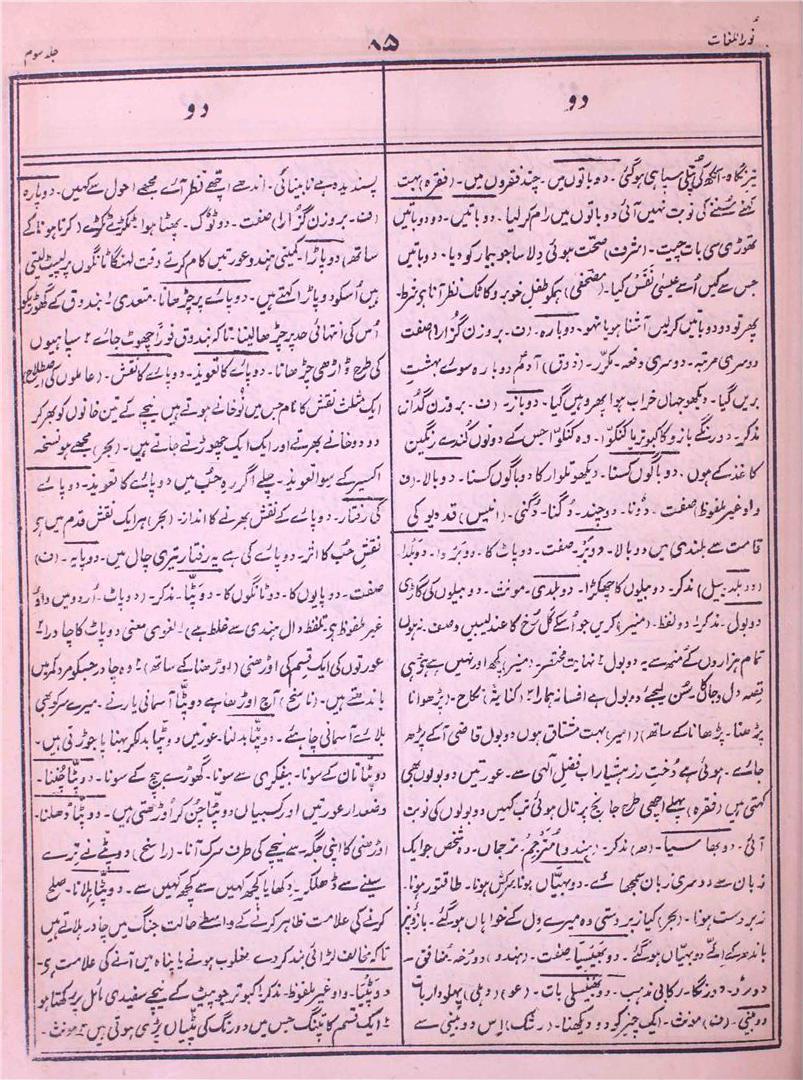 نور اللغات
۸۵
جلد سوم
دو
دو
تیرنگاہ۔ آنکھ کی پتلی سیاہی ہوگئی۔ دو باتوں میں۔ چند فقروں میں۔ (فقرہ) بہت
کہنے سننے کی نوبت نہیں آئی دو باتوں میں رام کر لیا۔ دو باتیں۔ دو دو باتیں
تھوڑی سی بات چیت۔ (شرف) صحت ہوئی دلاسا جو بیمار کو دیا۔ دو باتیں
جس سے کیں اُسے عیسیٰ نفَس کیا۔ (مصحفی) ہمکو طفل خوبرو کا تک نظر آنا ہی شرط۔
پھر تو دو دو باتیں کر لیں آشنا ہو یا نہو۔ دوبارہ۔ (ف۔ بر وزن گزارا) صفت
دوسری مرتبہ۔ دوسری دفعہ۔ مکرّر۔ (ذوق) آدم دوبارہ سوے بہشتِ
بریں گیا۔ دیکھو جہاں خراب ہوا پھر وہیں گیا۔ دوباز۔ (ف۔ بر وزن گداز)
مذکر۔ دو رنگے بازو کا کبوتر یا کنکوّا۔ وہ کنکوّا جس کے دونوں کُندے رنگین
کاغذ کے ہوں۔ دو باگوں کسنا۔ دیکھو تلوار کا دوباگوں کسنا۔ دوبالا۔ (ف
واو غیر ملفوظ) صفت۔ دُونا۔ دوچند۔ دُگنا۔ دُگنی۔ (انیس) قد دیو کی
قامت سے بلندی میں دوبالا۔ دوبَر۔ صفت۔ دوپاٹ کا۔ دوبَرْوا۔ دوبَلدا
(دو بلد بیل) مذکر۔ دو بیلوں کا چھکڑا۔ دو بلدی۔ مونث۔ دو بیلوں کی گاڑی
دو بول۔ مذکر ؛ دو لفظ۔ (منیر) کریں جو اُسکے گل رُخ کا عندلیبیں وصف۔ نہ ہوں
تمام ہزاروں کے منہ سے یہ دو بول ؛ نہایت مختصر۔ (منیر) کچھ اور نہیں ہے جز ہی
قصہ دل و جاں کا۔ سُن لیجیے دو بول ہے افسانہ ہمارا ؛ (کنایۃً) نکاح۔ (پڑھوانا
پڑھنا۔ پڑھانا کے ساتھ) (امیر) بہت مشتاق ہوں دو بول قاضی آکے پڑھ
جائے۔ ہوئی ہے دُختِ رز ہشیار اب فضل الٰہی سے۔ عورتیں دو بولوں بھی
کہتی ہیں (فقرہ) پہلے اچھی طرح جانچ پڑتال ہوئی تب کہیں دو بولوں کی نوبت
آئی۔ دوبھاسیا۔ (ھ) مذکر۔ (ہندو) مُترجِم۔ ترجماں۔ وہ شخص جو ایک
زبان سے دوسری زبان سمجھائے۔ دو بہیّاں ہونا۔ سرکش ہونا۔ طاقتور ہونا۔
زبردست ہونا۔ (بحر) کیا زبردستی وہ میرے دل کے خواہاں ہو گئے۔ بازو پر
باندھ کے اِکّے دو بہیّاں ہو گئے۔ دوبھیسیا صفت۔ (ہندو) دو رُخہ۔ منافق۔
دو رِو۔ دو رنگا۔ رکابی مذہب۔ دوبھیسلی بات۔ (عو) (دہلی) پہلو دار بات
دوبینی۔ (ف) مونث۔ ایک چیز کو دو دیکھنا۔ (رشک) اس دوبینی سے
پسندیدہ ہے نابینائی۔ اندھے اچھے نظر آئے مجھے احول سے کہیں۔ دوپارہ
(ف۔ بروزن گزارا) صفت۔ دوٹوک۔ پھٹا ہوا۔ ٹکڑے ٹکڑے (کرنا ہونا کے
ساتھ) دوپاڑا۔ کمینی ہندو عورتیں کام کرتے وقت لہنگا ٹانگوں پر لپیٹ لیتی
ہیں اُسکو دوپاڑا کہتے ہیں۔ دوپائے پر چڑھانا۔ متعدی ؛ بندوق کے گھوڑیکو
اُس کی انتہائی حد پر چڑھا لینا۔ تاکہ بندوق فوراً چھوٹ جائے ؛ سپاہیوں
کی طرح ڈاڑھی چڑھانا۔ دوپائے کا تعویذ۔ دوپائے کا نقش۔ (عاملوں کی اصطلاح)
ایک مثلث نقش کا نام جس میں نو خانے ہوتے ہیں نیچے کے تین خانوں کو بھر کر
دو دو خانے بھرتے اور ایک ایک چھوڑتے جاتے ہیں۔ (بحر) مجھے ہو نسخہ
اکسیر کے سوا تعویذ۔ چلے اگر رہ حُب میں دوپائے کا تعویذ۔ دوپائے
کی رفتار۔ دوپائے کے نقش بھرنے کا انداز۔ (بحر) ہر ایک نقش قدم میں ہی
نقش حُب کا اثر۔ دوپائے کی ہے یہ رفتار تیری چال میں۔ دوپایہ۔ (ف)
صفت۔ دوپایوں کا۔ دو ٹانگوں کا۔ دوپٹّا۔ مذکر۔ (دوپاٹ۔ اُردو میں واؤ
غیر ملفوظ ہی تلفظ دال ہندی سے غلط ہے) ؛ لغوی معنی دوپاٹ کا چادرا ؛
عورتوں کی ایک قسم کی اوڑھنی (اوڑھنا کے ساتھ) ؛ وہ چادر جسکو مرد کمر میں
باندھتے ہیں۔ (ناسخ) آج اوڑھا ہے دوپٹا آسمانی یار نے۔ میرے سر کو بھی
بلائے آسمانی چاہئے۔ دوپٹا بدلنا۔ عورتیں دوپٹا بدلکر بہنا پا جوڑتی ہیں۔
دوپٹا تان کے سونا۔ بیفکری سے سونا۔ گھوڑے بیچ کے سونا۔ دوپٹا چُننا۔
وضعدار عورتیں اور کسبیاں دوپٹا چُن کر اُوڑھتی ہیں۔ دوپٹا ڈھلنا۔
اوڑھنی کا اپنی جگہ سے نیچے کی طرف سرک آنا۔ (راسخ) دوپٹے نے ترے
سینے سے ڈھلکر۔ دکھایا کچھ کہیں سے کچھ کہیں سے۔ دوپٹا ہلانا۔ صلح
کرنے کی علامت ظاہر کرنے کے واسطے حالت جنگ میں چادر ہلاتے ہیں
تاکہ مخالف لڑائی بند کر دے۔ مغلوب ہونے یا پناہ میں آنے کی علامت ہے۔
دوپَٹّیا۔ واو غیر ملفوظ۔ مذکر ؛ کبوتر جو پیٹ کے نیچے سفیدی مائل پر رکھتا ہو
؛ ایک قسم کا پتنگ جس میں دو رنگ کی پٹیاں پڑی ہوتی ہیں ؛ مونث۔